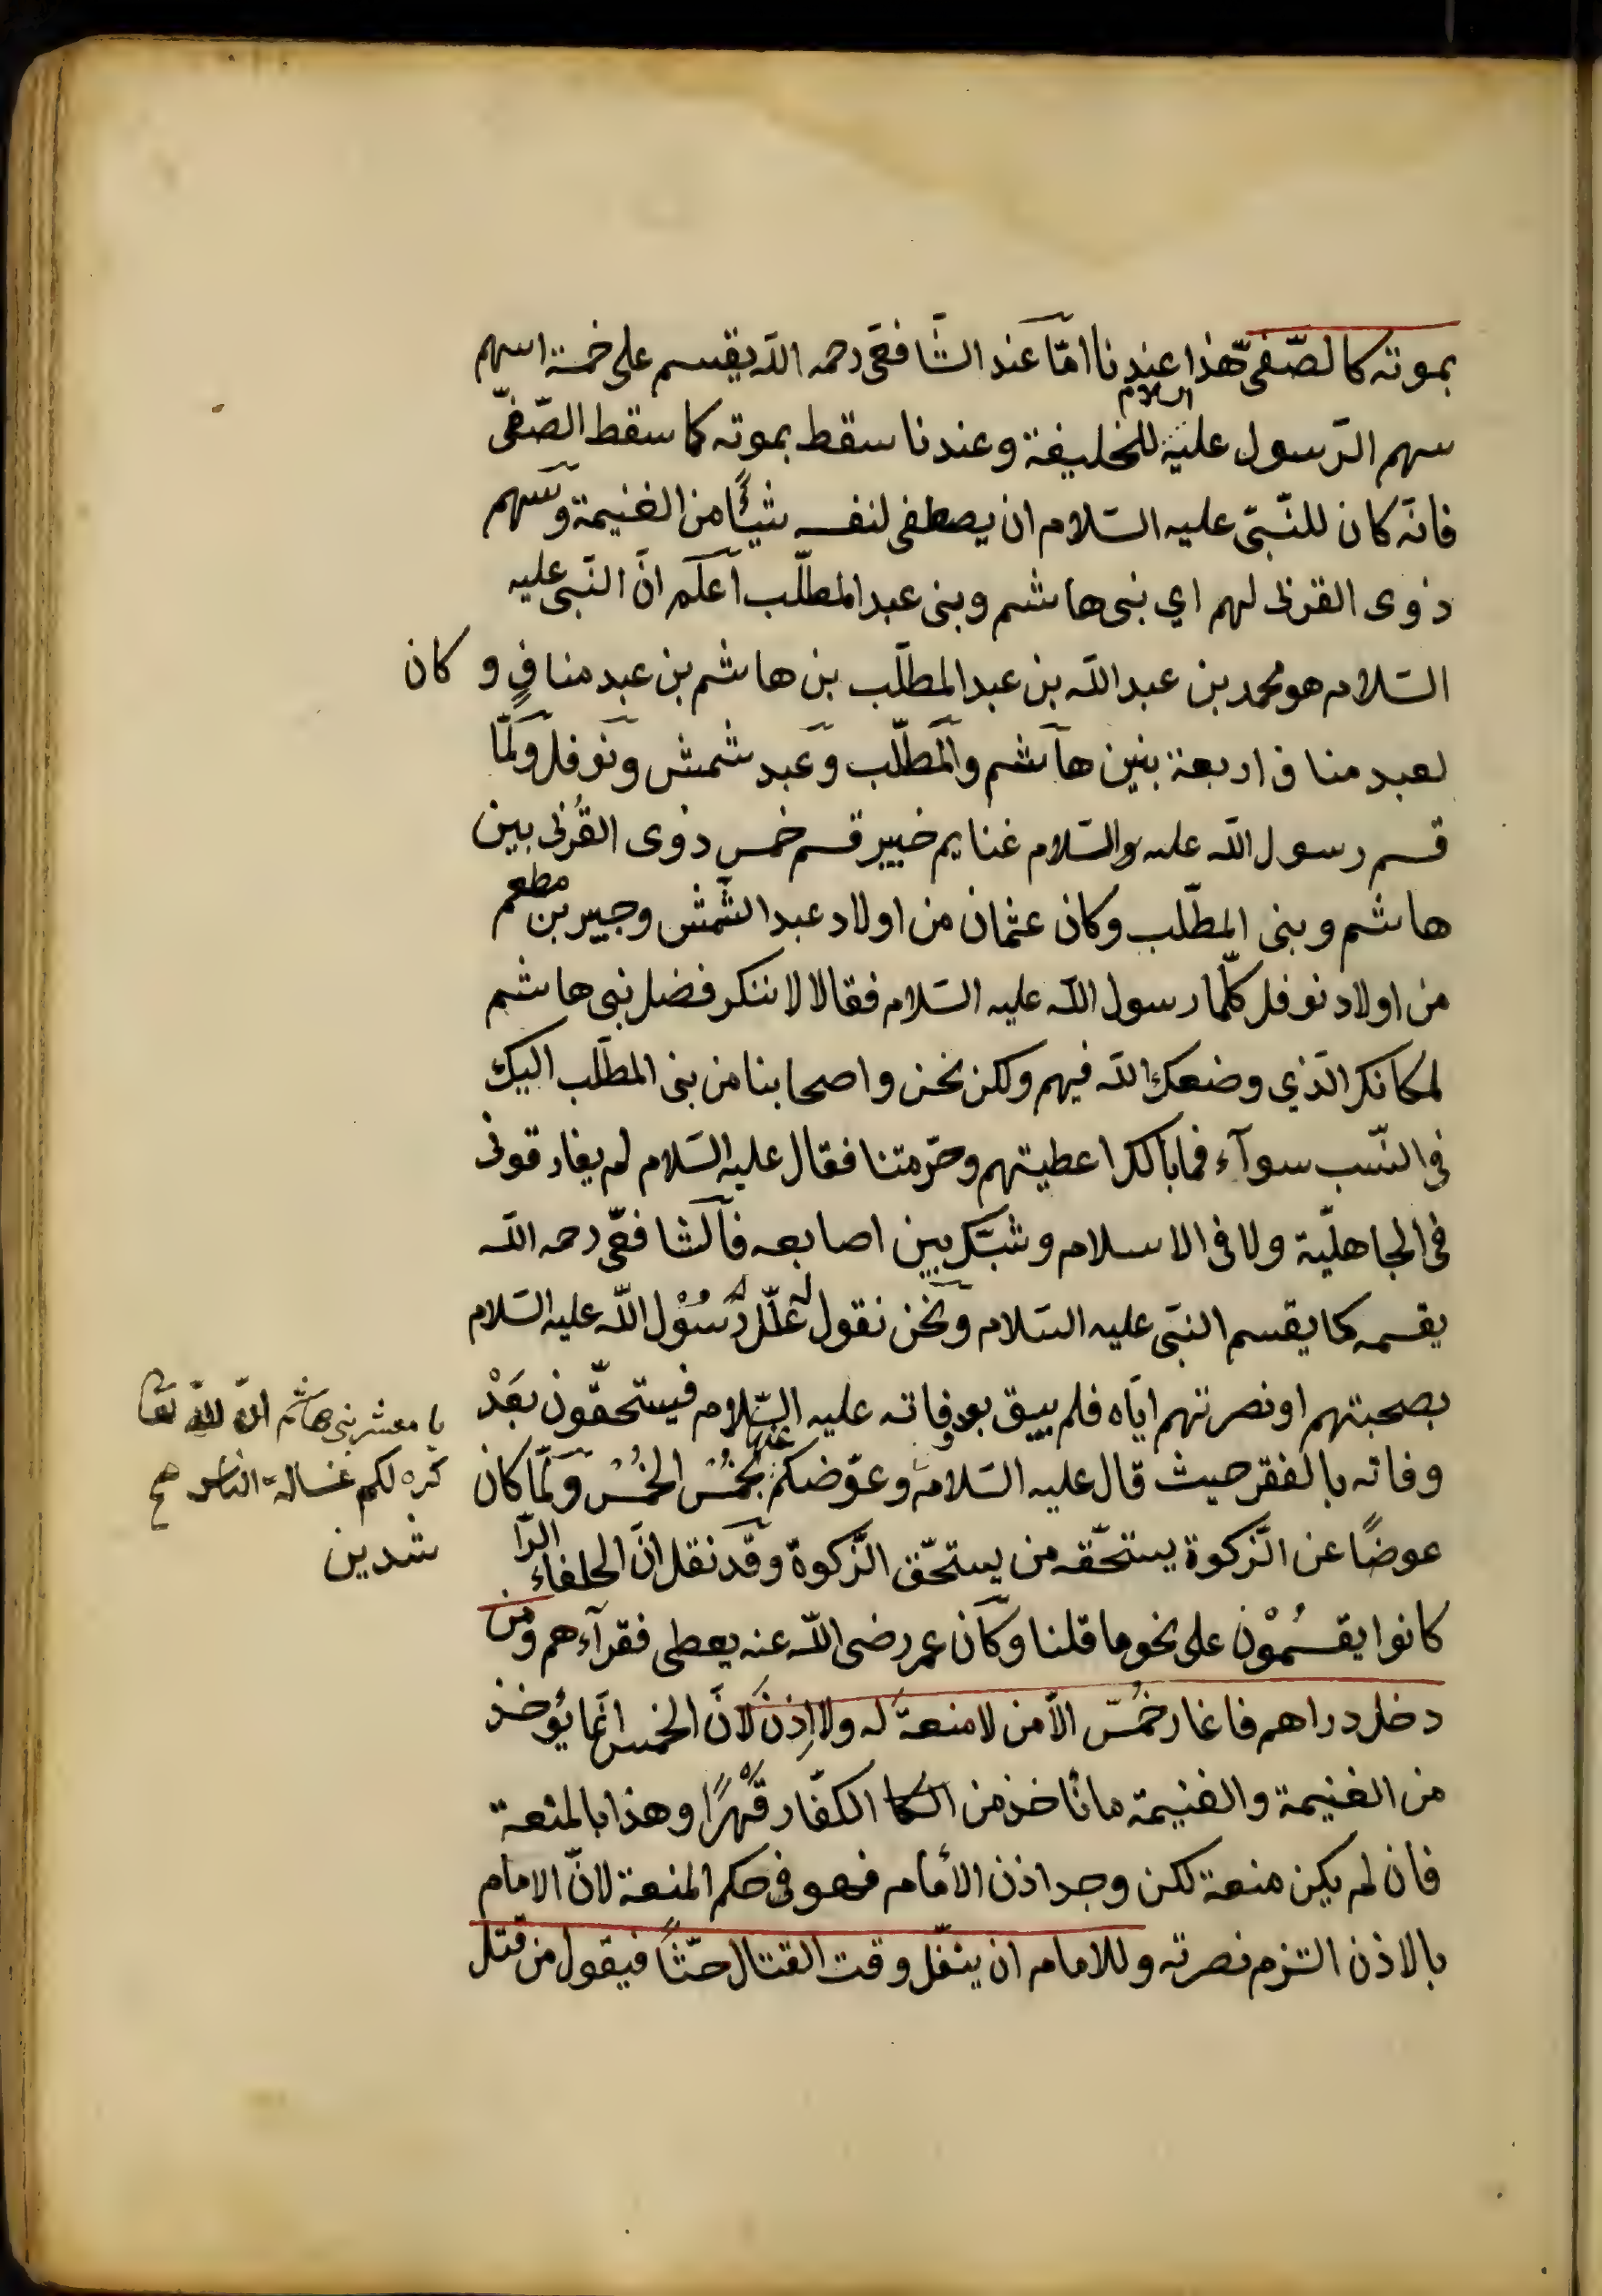 بموته كالصّفىّ هذا عندنا امّا عند الشّافعىّ رحمه اللّه يقسم على خمسة اسهم
سهم الرّسول عليه السلام للخليفة وعندنا سقط بموته كما سقط الصّفىّ
فانّه كان للنّبىّ عليه السّلام ان يصطفى لنفسه شيئًا من الغنيمة وسهم
ذوى القربى لهم اي بنى هاشم وبنى عبد المطلّب اعلم انّ النّبى عليه
السّلام هو محمد بن عبد اللّه بن عبد المطلّب بن هاشم بن عبد منافٍ و كان
لعبد مناف اربعة بنين هاشم والمطلّب وعبد شمش ونوفل ولمّا
قسم رسول اللّه عليه والسّلام غنايم خيبر قسم خمس ذوى القُربى بين
هاشم وبنى المطلّب وكان عثمان من اولاد عبد الشّمش وجبير بن مطعم
من اولاد نوفل كلّما رسول اللّه عليه السّلام فقالا لا ننكر فضل بنى هاشم
لمكانك الّذي وضعك اللّه فيهم ولكن نحن واصحابنا من بنى المطلّب اليك
فى النّسب سوآء فما بالك اعطيتهم وحرّمتنا فقال عليه السّلام لم يفارقونى
فى الجاهليّة ولا فى الاسلام وشبّك بين اصابعه فالشافعّى رحمه اللّه
يقسمه كما يقسم النبّى عليه السّلام ونحن نقول له علّل رسُوْل اللّه عليه السّلام
بصحبتهم او نصرتهم ايّاه فلم يبق بعد وفاته عليه السّلام فيستحقّون بعَدْ
وفاته بالفقر حيث قال عليه السّلام وعوّضكم عنها بخُمُسْ الخُمُسْ ولمّا كان
يا معشر بنى هاشم انّ اللّه تعا
كره لكم غسالة الناس صح
عوضًا عن الزّكوة يستحّقه من يستحّق الزّكوة وقد نقل انّ الخلفاء الرّا
شدين
كانوا يقسُمُوْن على نحو ما قلنا وكان عمر رضى اللّه عنه يعطى فقرآءهم ومن
دخل دراهم فاغار خُمسّ الاّ من لا منعة له ولا اذن لانّ الخمس انّما يؤخذ
من الغنيمة والغنيمة ما تأخذ من الكا الكفّار قَهْرًا وهذا بالمنعة
فان لم يكن منعة لكن وجد اذن الأمام فهو فى حكم المنعة لانّ الامام
بالاذن التزم نصرته وللامام ان ينفّل وقت القتال حثّا فيقول من قتل